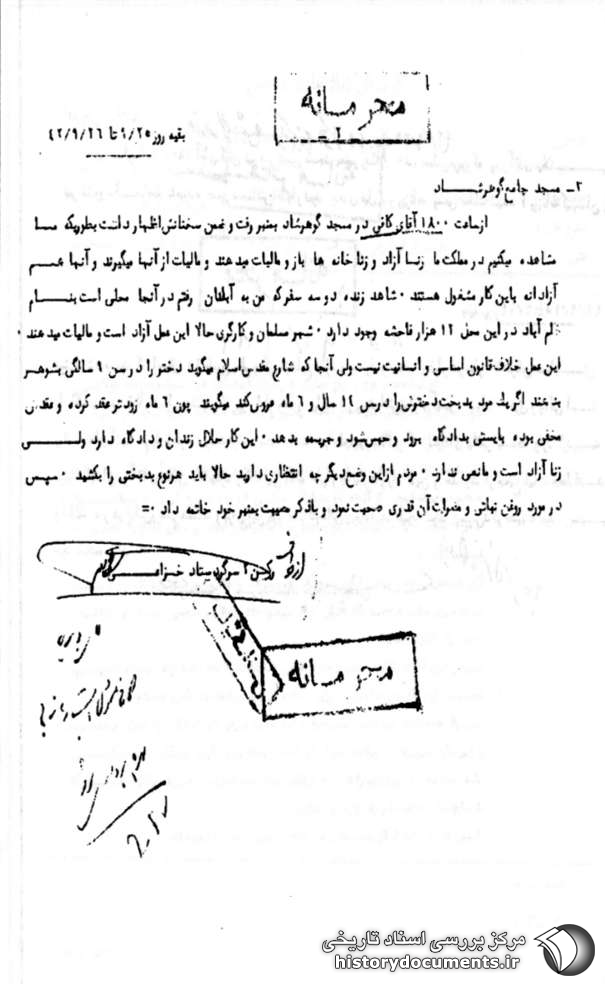 محرمانه
بقیه روز ۹/۲۵ تا ۴۲/۹/۲۶
۲- مسجد جامع گوهرشاد
از ساعت ۱۸۰۰ آقای کافی در مسجد گوهرشاد بمنبر رفت و ضمن سخنانش اظهار داشت بطوریکه ما
مشاهده میکنیم در مملکت ما زنا آزاد و زنا خانه ها باز و مالیات میدهند و مالیات از آنها میگیرند و آنها هم
آزادانه باین کار مشغول هستند ۰ شاهد زنده دو سه سفر که من به آبادان رفتم در آنجا محلی است بنام
در این محل ۱۲ هزار فاحشه وجود دارد ۰ شهر مسلمان و کارگری حالا این عمل آزاد است و مالیات میدهند ۰
این عمل خلاف قانون اساسی و انسانیت نیست ولی آنجا که شارع مقدس اسلام میگوید دختر را در سن ۹ سالگی بشوهر
بدهند اگر یک مرد بدبخت دخترش را در سن ۱٤ سال و ۶ ماه عروس کند میگویند چون ۶ ماه زودتر عقد کرده و عقدش
مخفی بوده بایستی بدادگاه برود و حبس شود و جریمه بدهد ۰ این کار حلال زندان و دادگاه دارد ولی
زنا آزاد است و مانعی ندارد ۰ مردم از این وضع دیگر چه انتظاری دارید حالا باید هر نوع بدبختی را بکشید ۰ سپس
در مورد روغن نباتی و مضرات آن قدری صحبت نمود و با ذکر مصیبت بمنبر خود خاتمه داد ۰=
رکن ۲ سرگرد ستاد خزاعی
محرمانه
مرکز بررسی اسناد تاریخی
historydocuments.ir